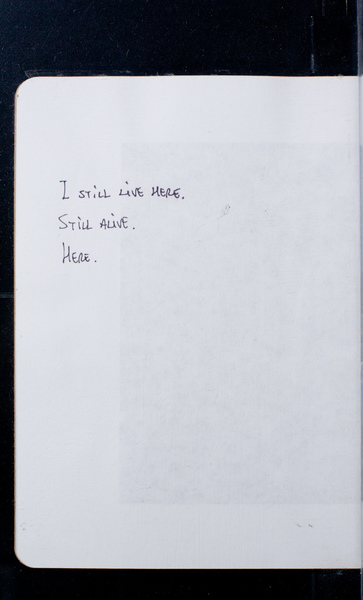 I still live here.
Still alive.
Here.